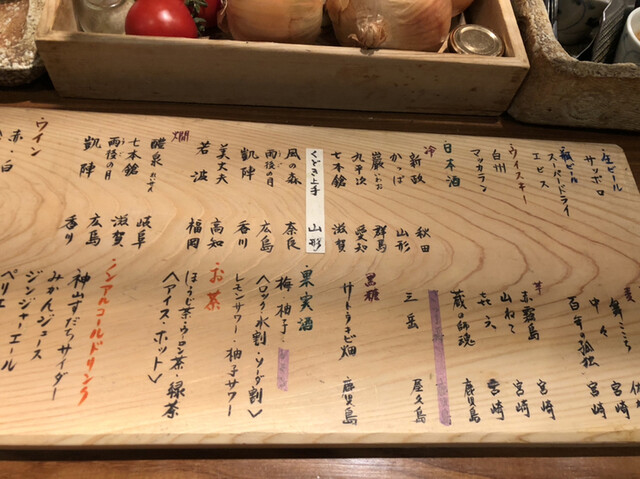 ・生ビール
サッポロ
・瓶ビール
スーパードライ
エビス
・ウイスキー
白州
マッカラン
・日本酒
冷
新政 秋田
かっぱ 山形
巌 いわお 群馬
九平次 愛知
七本鎗 滋賀
くどき上手 山形
風の森 奈良
雨後の月 広島
凱陣 香川
美丈夫 高知
若波 福岡
燗
醴泉 岐阜
七本鎗 滋賀
雨後の月 広島
凱陣 香川
・ワイン
赤・白
麦
舞こころ 宮崎
中々 宮崎
百年の孤独 宮崎
芋
赤霧島 宮崎
山ねこ 宮崎
㐂六 宮崎
蔵の師魂 鹿児島
三岳 屋久島
黒糖
サトウキビ畑 鹿児島
果実酒
梅・柚子
〈ロック・水割・ソーダ割〉
レモンサワー・柚子サワー
・お茶
ほうじ茶・ウーロン茶・緑茶
〈アイス・ホット〉
・ノンアルコールドリンク
神山すだちサイダー
みかんジュース
ジンジャーエール
ペリエ